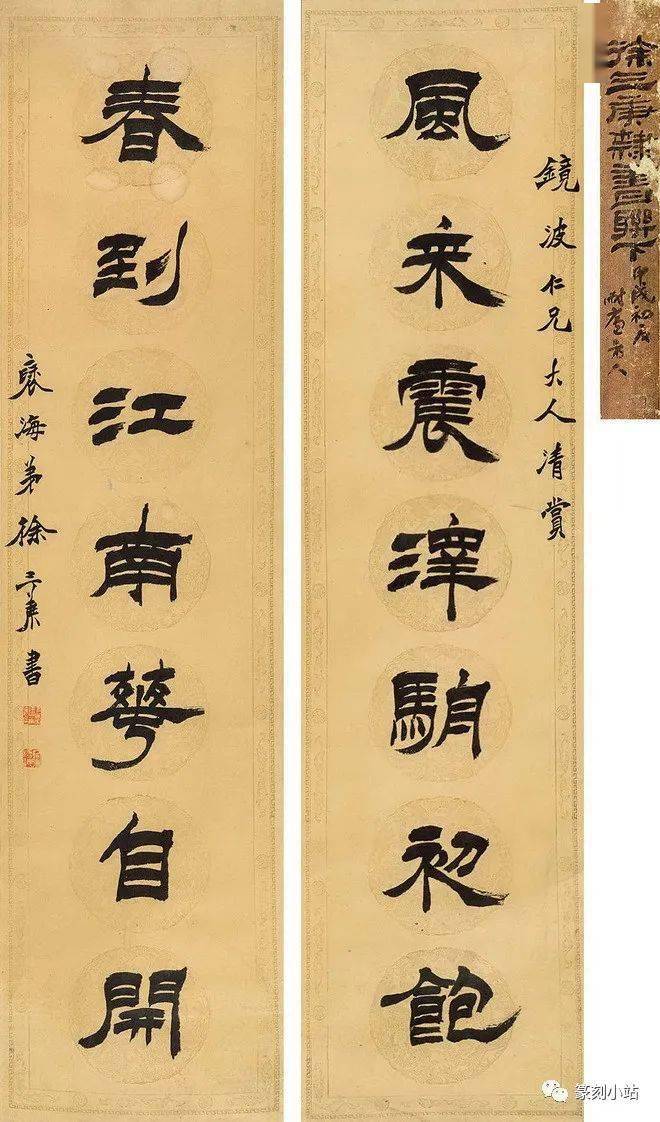 徐三庚隸書聯
鏡波仁兄大人清賞
風來震澤初飽
春到江南華自開
褎海弟徐三庚書
篆刻小站